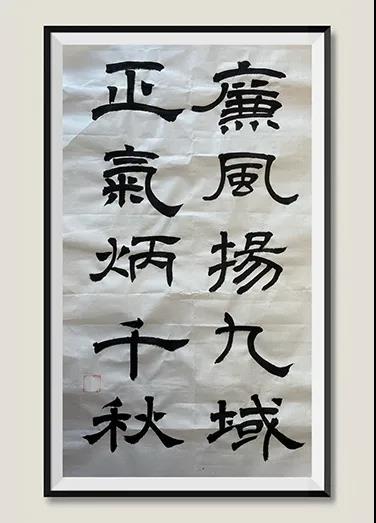 廉風揚九域
正氣炳千秋